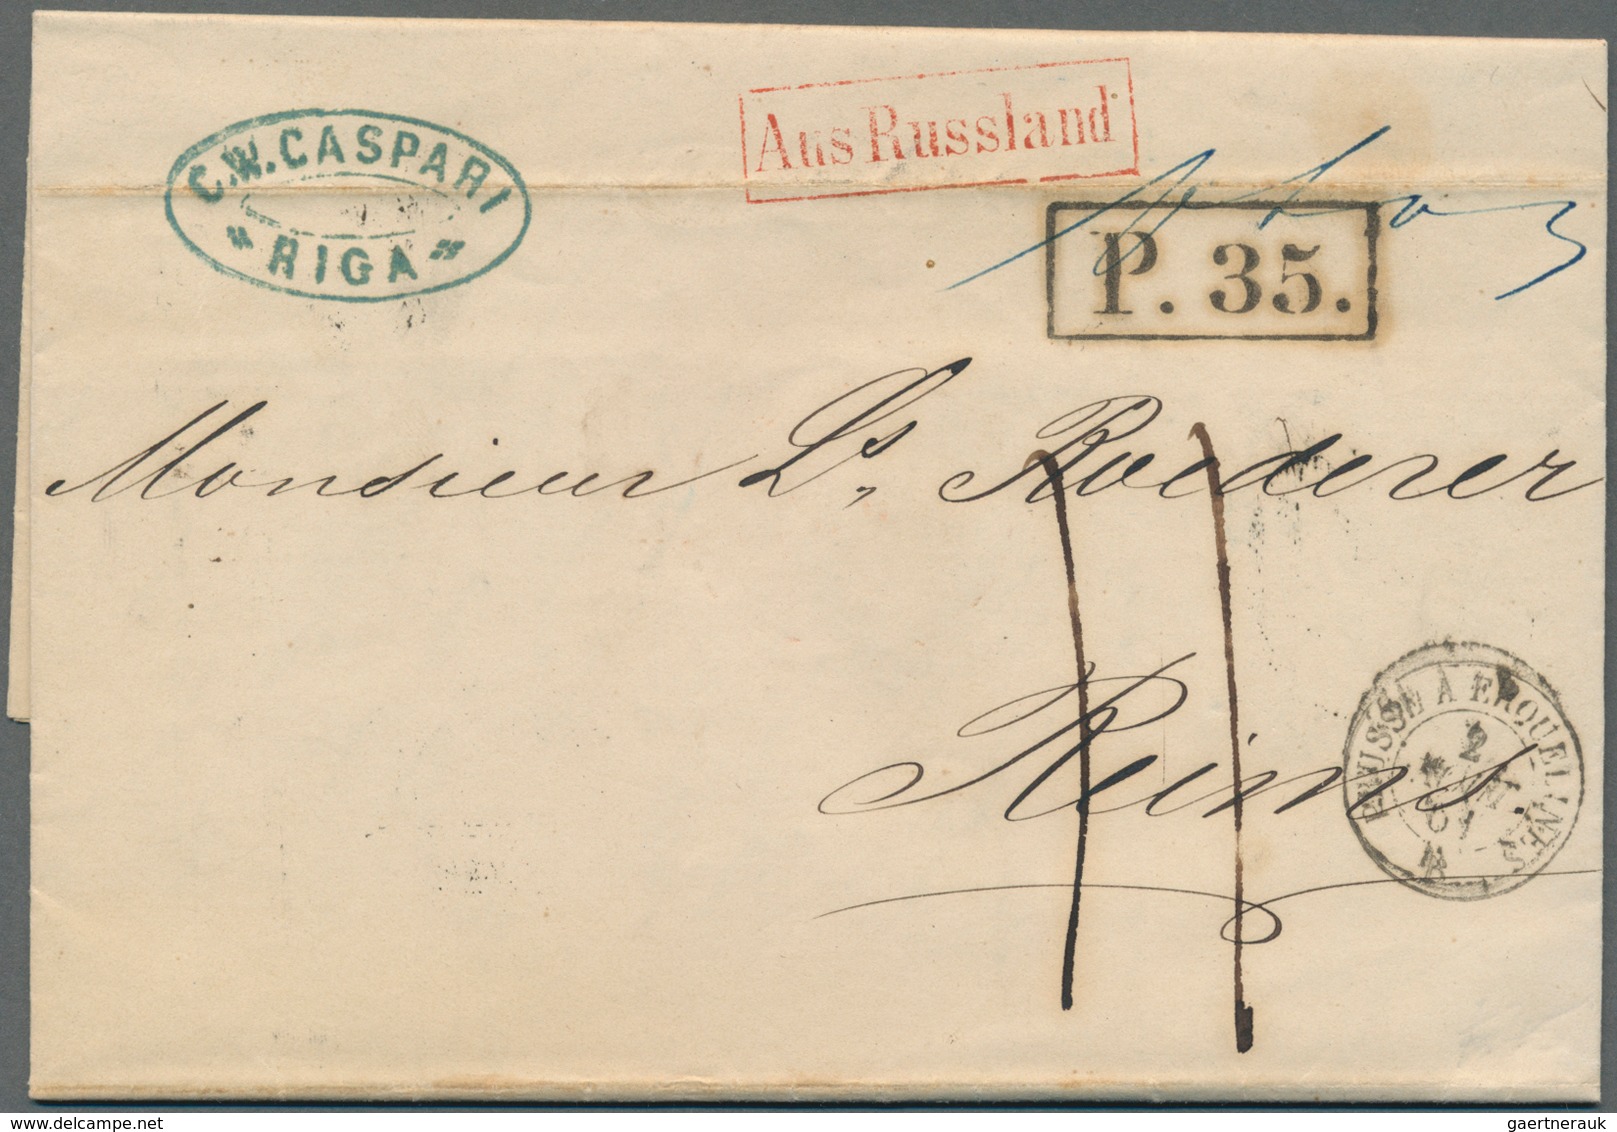 C.W.CASPARI
"RIGA"
Aus Russland
P. 35.
Monsieur Ls, Roederer
Reims.
PRUSSE À ERQUELINES
2
61
gaertnerauk / www.delcampe.net